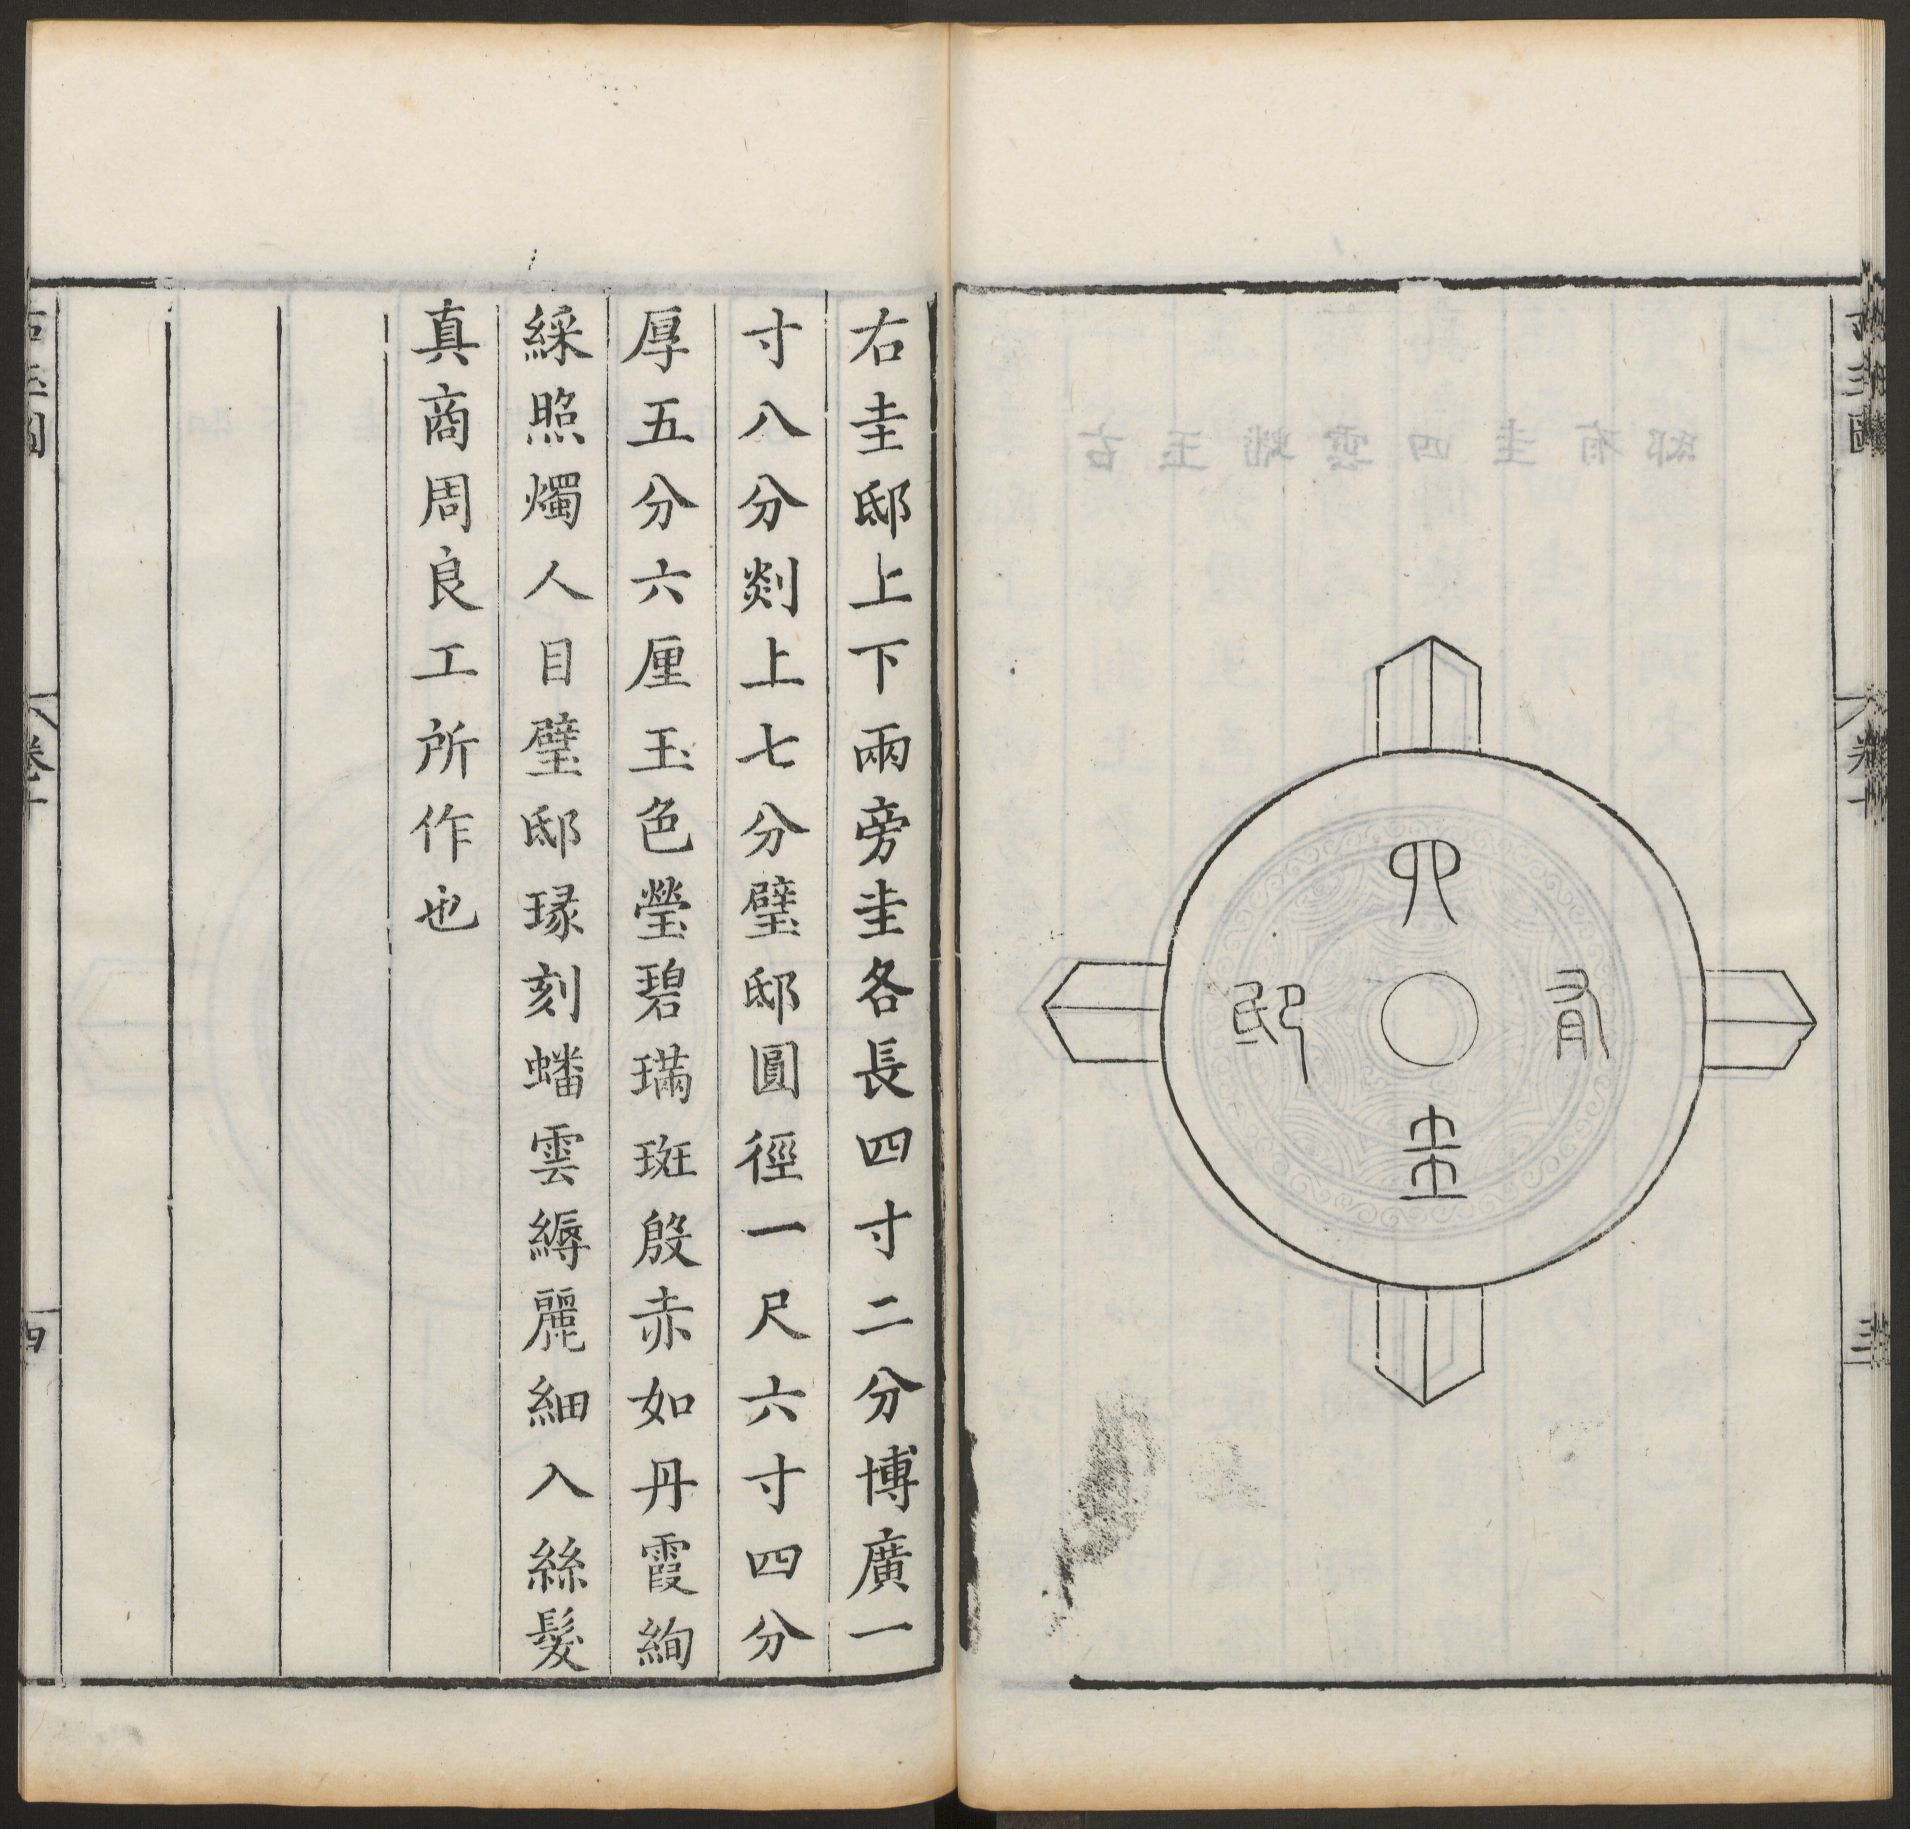 四
圭
有
邸
右圭邸上下兩旁圭各長四寸二分博廣一
寸八分剡上七分璧邸圓徑一尺六寸四分
厚五分六厘玉色瑩碧璊斑殷赤如丹霞絢
綵照燭人目璧邸瑑刻蟠雲縟麗細入絲髮
真商周良工所作也